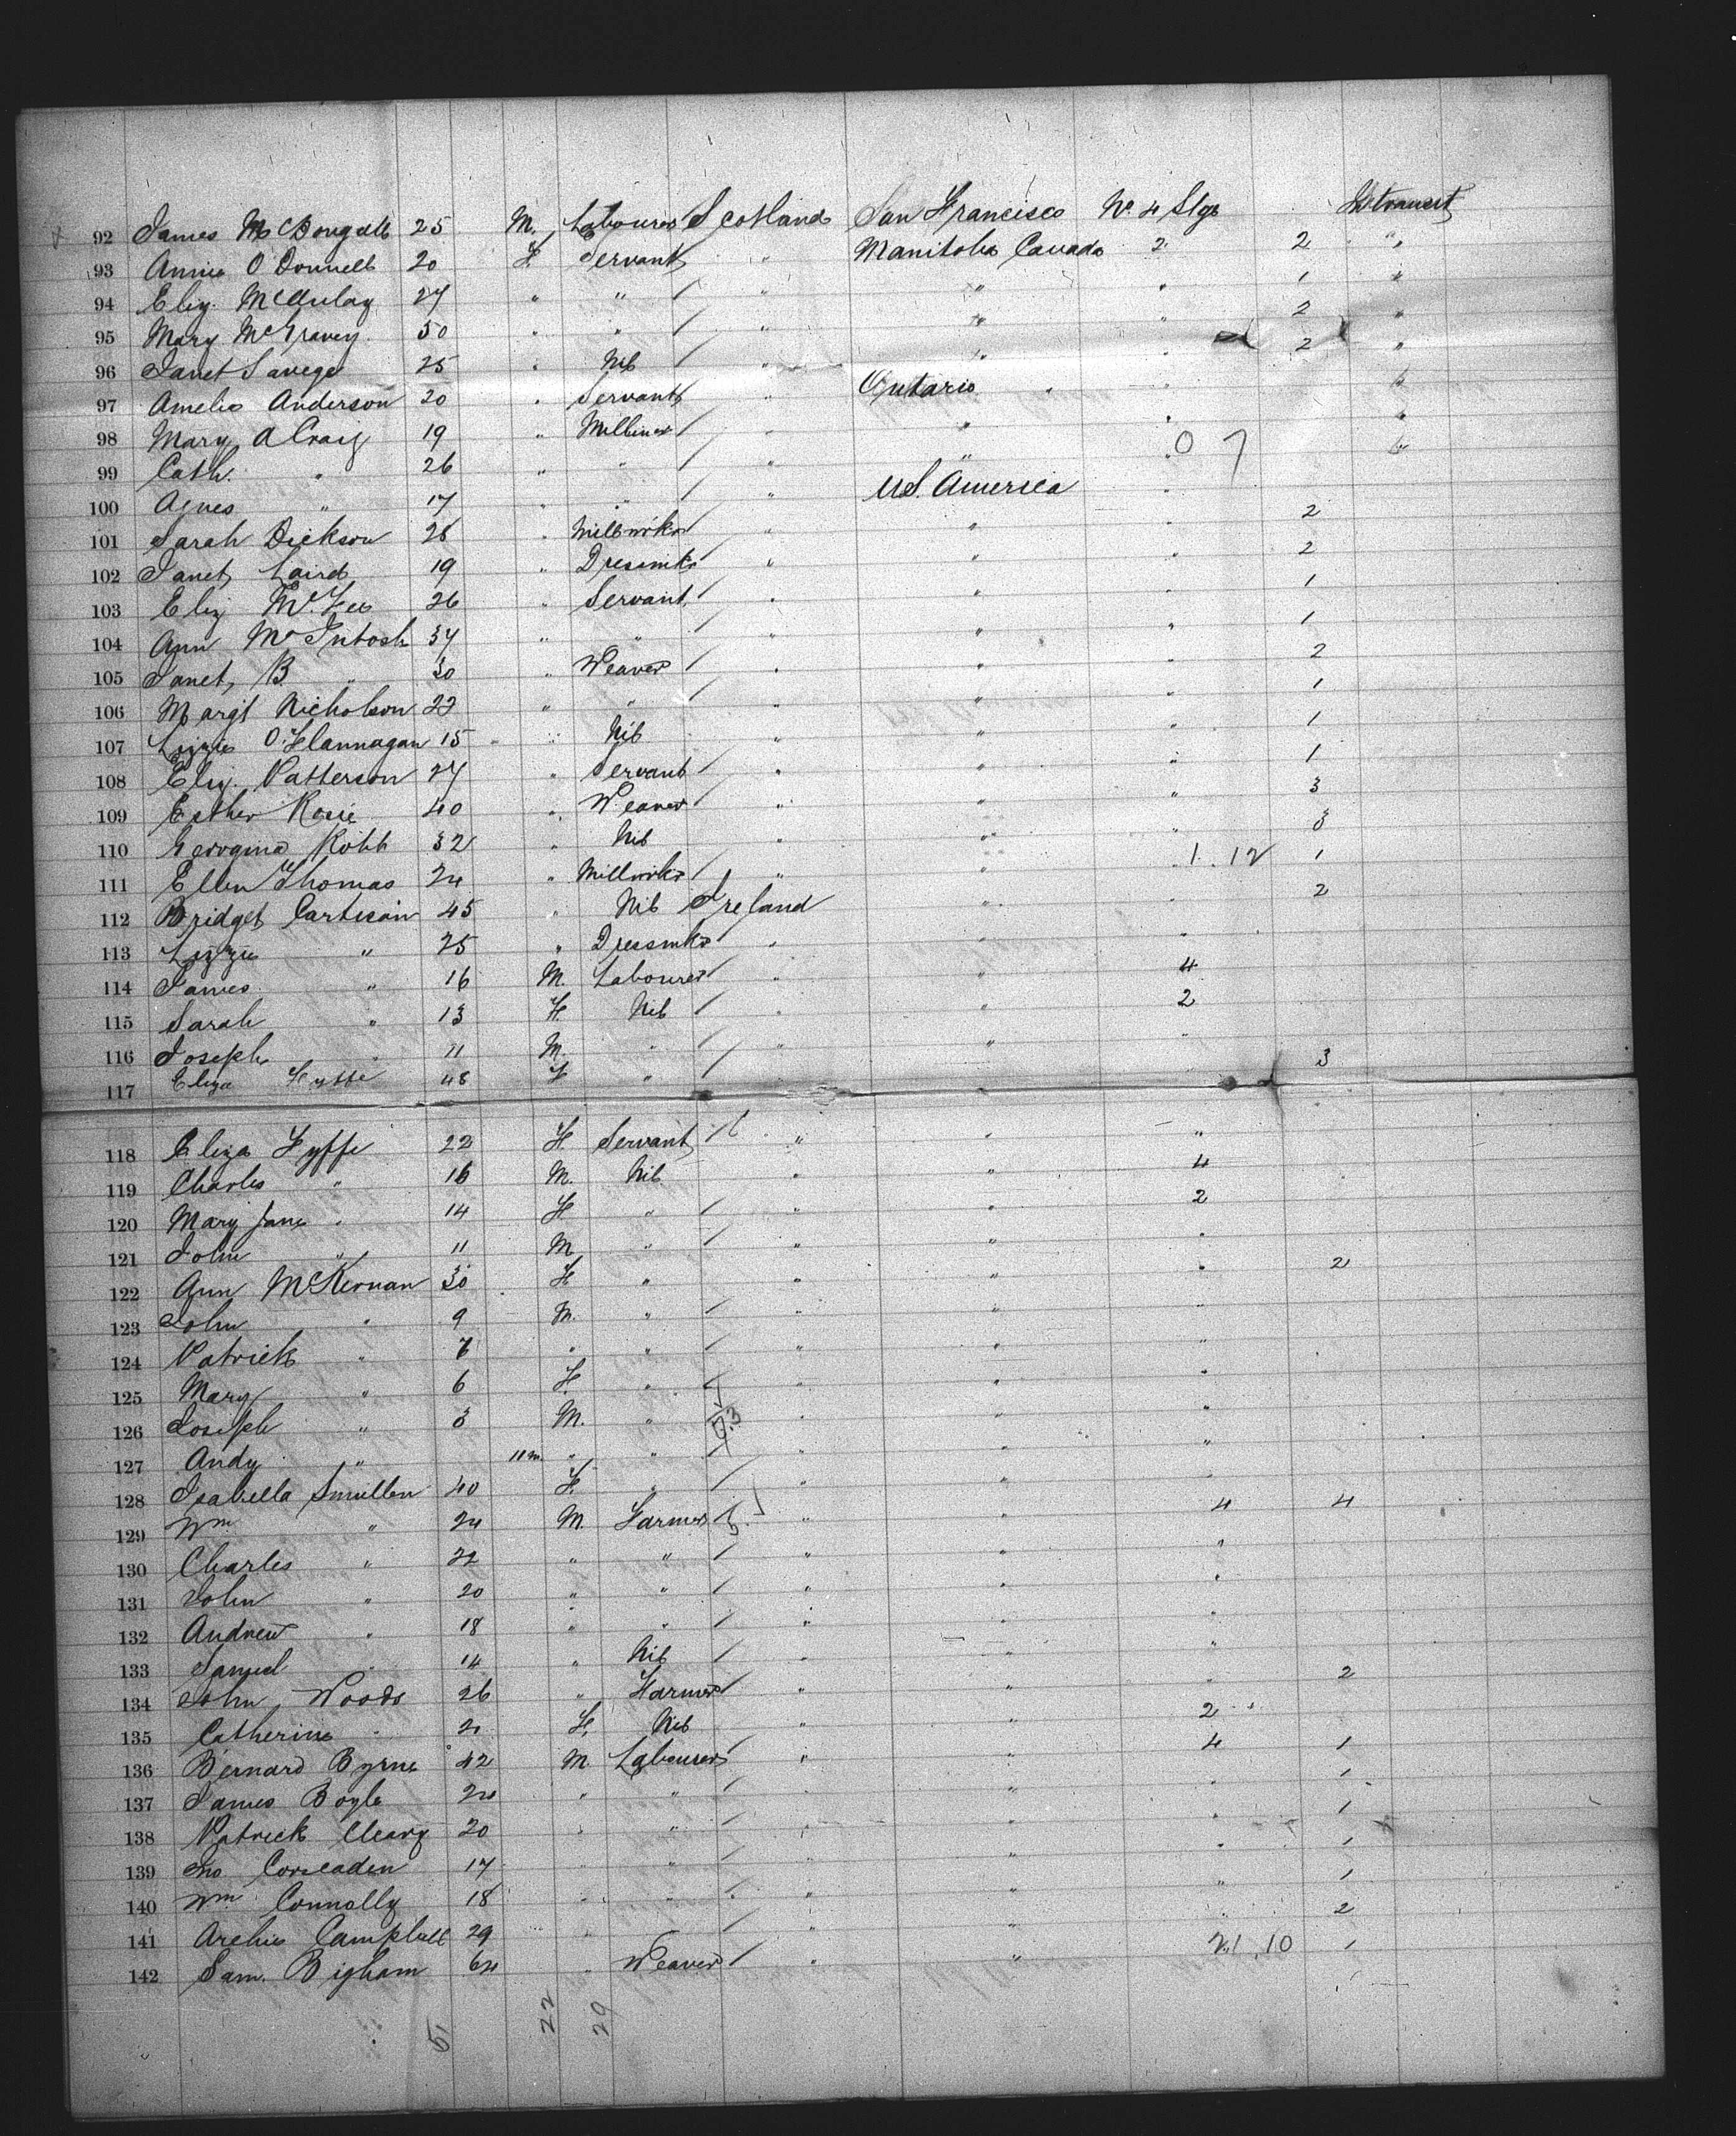 92 James McDougall 25 M. Labourer Scotland San Francisco No 4 Stge Intransit
93 Annie O'Donnell 20 F. Servant " Manitoba Canada 2 2 "
94 Eliz. McAulay 27 " " " " " 1 "
95 Mary McGravey 50 " " " " " 2 "
96 Janet Savege 25 " Nil " " " 2 "
97 Amelia Anderson 20 " Servant " Ontario " "
98 Mary A Craig 19 " Milliner " " " "
99 Cath. " 26 " " " " " 0 7 "
100 Agnes " 17 " " " U.S. America "
101 Sarah Dickson 28 " Millwrkr " " " 2
102 Janet Laird 19 " Dressmkr " " " 2
103 Eliz McFee 26 " Servant " " 1
104 Ann McIntosh 37 " " " " " 1
105 Janet, B " 30 " Weaver " " " 2
106 Margt Nicholson 22 " " " " " 1
107 Lizzie O'Flannagan 15 " Nil " " " 1
108 Eliz. Patterson 27 " Servant " " " 1
109 Esther Rosie 40 " Weaver " " " 3
110 Georgina Robb 32 " Nil " " " 3
111 Ellen Thomas 24 " Millwrkr " " 1. 12 1
112 Bridget 45 " Nil Ireland " " 2
113 Lizzie " 25 " Dressmkr " " "
114 James " 16 M. Labourer " " 4
115 Sarah " 13 F. Nil " " 2
116 Joseph " 11 M. " " " "
117 Eliza Fyffe 48 F " 3
118 Eliza Fyffe 22 F. Servant " " "
119 Charles " 16 M. Nil " " 4
120 Mary Jane " 14 F. " " " 2
121 John " 11 M " " " "
122 Ann McKernan 30 F. " " " " 2
123 John " 9 M. " " " "
124 Patrick " 7 " " " " "
125 Mary " 6 F. " " " "
126 Joseph " 3 M. " " " "
127 Andy " 11m. " " " " "
128 Isabella Smullen 40 F. " " " "
129 Wm " 24 M. Farmer " " 4 4
130 Charles " 22 " " " " "
131 John " 20 " " " " "
132 Andrew " 18 " " " " "
133 Samuel " 14 " Nil " " "
134 John Woods 26 " Farmer " " " 2
135 Catherine " 21 F. Nil " " 2
136 Bernard Byrne 42 M. Labourer " " 4 1
137 James Boyle 24 " " " " " 1
138 Patrick Cleary 20 " " " " " 1
139 Jno Corscaden 17 " " " " " 1
140 Wm Connolly 18 " " " " " 1
141 Archie Campbell 29 " " " " 2
142 Sam. Bigham 64 " Weaver " " 21.10 1
51 22 29